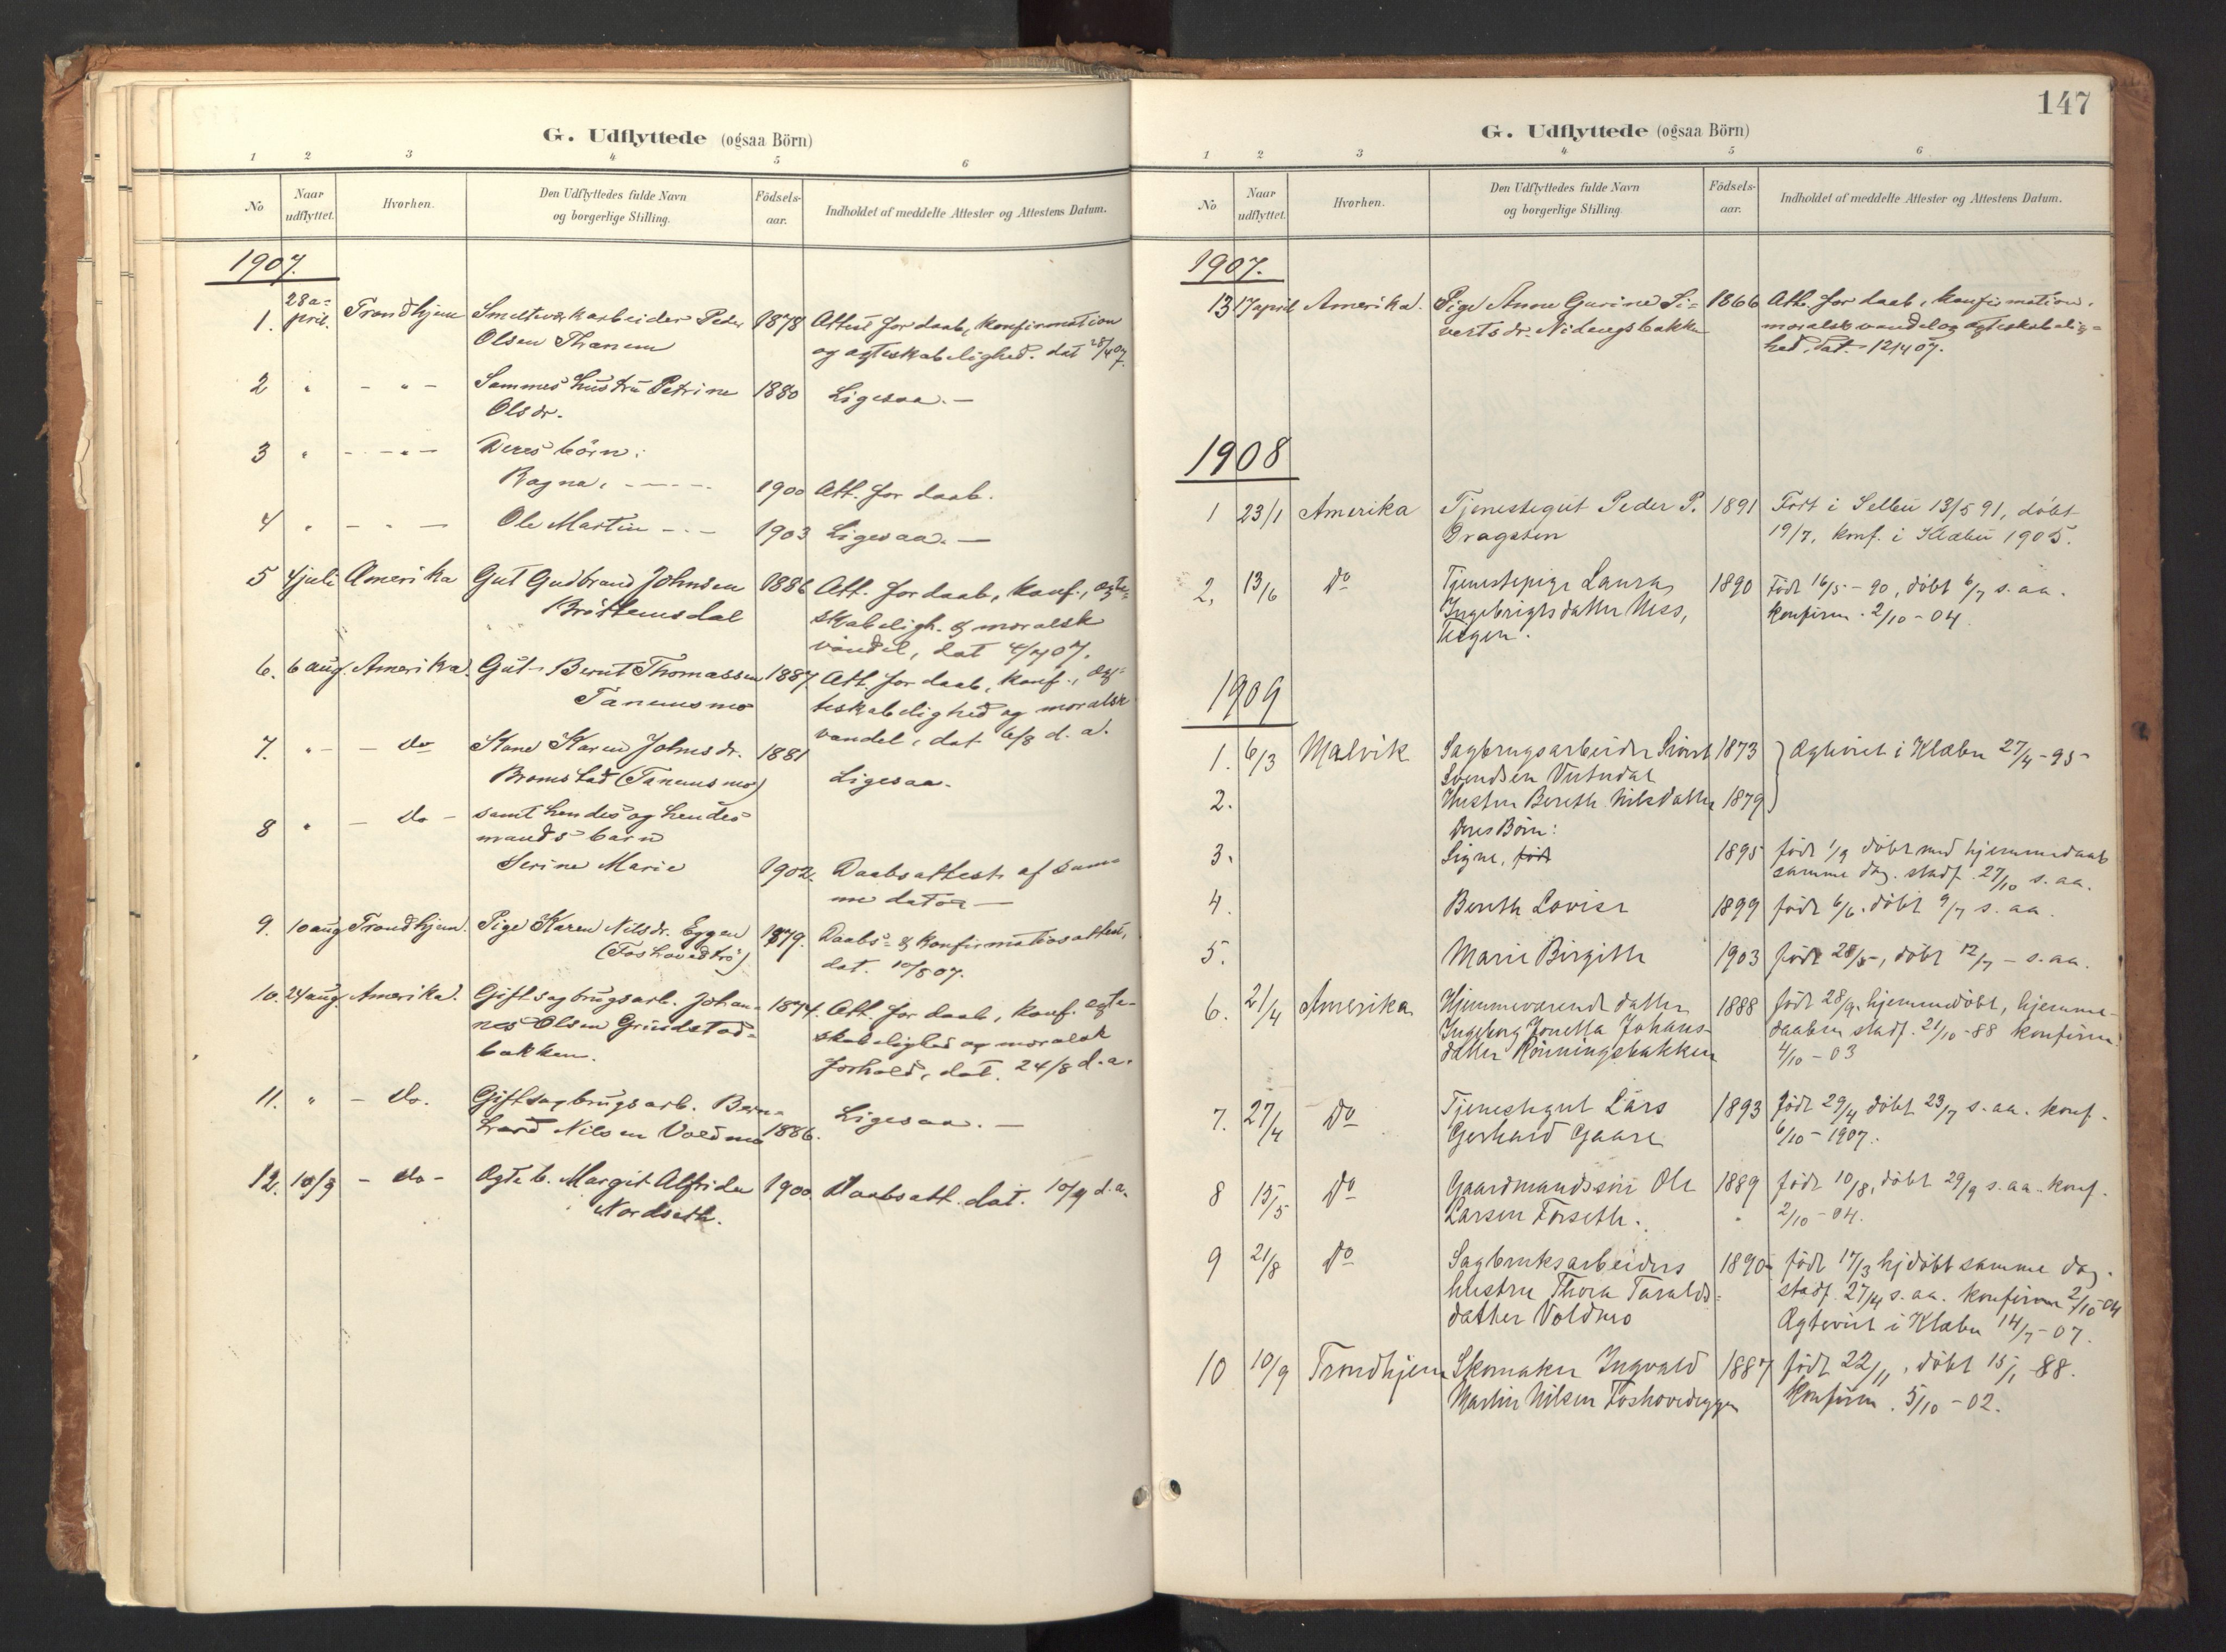 G. Udflyttede (ogsaa Börn)
1 2 3 4 5 6
No Naar udflyttet. Hvorhen. Den Udflyttedes fulde Navn og borgerlige Stilling. Födsels-aar. Indholdet af meddelte Attester og Attestens Datum.
1907.
1. 28 a-pril. Trondhjem Smelteværkarbeider Peder 1878 Attest for daab, konfirmation
Olsen Thanem og ægteskabelighed. dat 28/4 07.
2 " - " - Sammes hustru Petrine 1880 Ligesaa. -
Olsdr.
3 " - - " - Deres börn:
Ragna, - - - - 1900 Att. for daab.
4 " - " - Ole Martin - - - 1903 Ligesaa. -
5 4 juli Amerika Gut Gudbrand Johnsen 1886 Att. for daab, konf., ægte-
Bröttemsdal skabeligh. & moralsk
vandel, dat 4/7 07.
6. 6 aug. Amerika. Gut Bernt Thomassen 1887. Att. for daab, konf., æg-
Tanemsmo teskabelighed og moralsk
vandel, dat 6/8 d. a.
7. " - - do Kone Karen Johnsdr. 1881
Bromstad (Tanemsmo) Ligesaa.
8 " - do - samt hendes og hendes
mands barn
Serine Marie 1902. Daabsattest af sam-
me dato -
9. 10 aug Trondhjem. Pige Karen Nilsdr. Eggen 1879. Daabs- & konfirmationsattest,
(Foshovedtrö) dat. 10/8 07.
10. 24 aug. Amerika. Gift sagbrugsarb. Johan- 1874. Att. for daab, konf. ægte-
nes Olsen Grindstad- skabelighed og moralsk
bakken. forhold, dat. 24/8 d. a.
11. " - do. Gift sagbrugsarb. Bern-
hard Nilsen Voldmo 1886. Ligesaa. -
12. 10/9 - do - Ægte b. Margit Alfrida 1900 Daabsatt. dat. 10/9 d. a.
Nordseth.
147
G. Udflyttede (ogsaa Börn)
1 2 3 4 5 6
No Naar udflyttet. Hvorhen. Den Udflyttedes fulde Navn og borgerlige Stilling. Födsels-aar. Indholdet af meddelte Attester og Attestens Datum.
1907.
13 17 april Amerika. Pige Anne Gurine Si- 1866 Att. for daab, konfirmation,
vertsdr. Nidengsbakken moralsk vandel og ægteskabelig-
hed. Dat. 12/4 07.
1908
1 23/1 Amerika Tjenestegut Peder P. 1891 Født i Selbu 13/5 91, döbt
Dragsten 19/7, konf. i Klæbu 1905.
2, 13/6 Do Tjenestepige Laura 1890 Født 16/5 - 90, döbt 6/7 s. aa.
Ingebrigtsdatter Ness, konfirm. 2/10 - 04.
Teigen.
1909
1. 6/3 Malvik Sagbrugsarbeider Sivert 1873 } Ægteviet i Klæbu 27/4 - 95
Svendsen
2. Hustru Bereth Nilsdatter 1879
Deres Börn:
3. Signe, født 1895 født 1/9 döbt med hjemmedaab
samme dag. stadf. 27/10 s. aa.
4. Bereth Lovise 1899 født 6/6. döbt 9/7 s. aa.
5. Marie Birgitte 1903 født 28/5, döbt 12/7 - s. aa.
6. 21/4 Amerika Hjemmeværende datter 1888 født 28/9. hjemmedöbt, hjemme-
Ingeborg Jonetta Johans- daaben stadf. 21/10 - 88 konfirm.
datter Rönningsbakken 4/10 - 03
7. 27/4 Do Tjenestegut Lars 1893 født 29/4 döbt 23/7 s. aa. konf.
Gerhard Gaare 6/10 - 1907.
8 15/5 Do Gaardmandssön Ole 1889 født 10/8, döbt 29/9 s. aa. konf.
Larsen Forseth. 2/10 - 04.
9 21/8 Do Sagbruksarbeiders 1890 født 17/3 hjdöbt samme dag.
hustru Thora Taralds- stadf. 27/4 s. aa. konfirm 2/10 - 04
datter Voldmo Ægteviet i Klæbu 14/7 - 07.
10 10/9 Trondhjem Skomaker Ingvald 1887 født 22/11, döbt 15/1 88.
Martin Nilsen Foshovedeggen konfirm. 5/10 - 02.